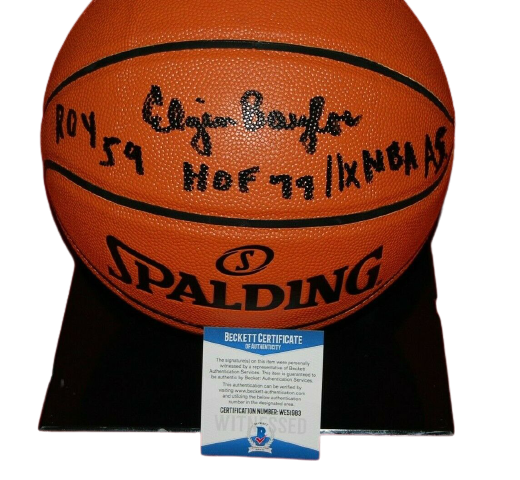 Elgin Baylor
ROY 59
HOF 77 / 11x NBA AS
S
SPALDING
BECKETT CERTIFICATE
OF AUTHENTICITY
The signature(s) on this item were personally
witnessed by a representative of Beckett
Authentication Services. This item is guaranteed to
be authentic by Beckett Authentication Services.
This authentication can be verified by
visiting www.beckett-authentication.com
and utilizing the below authentication
number in the designated area.
CERTIFICATION NUMBER:
WITNESSED
B